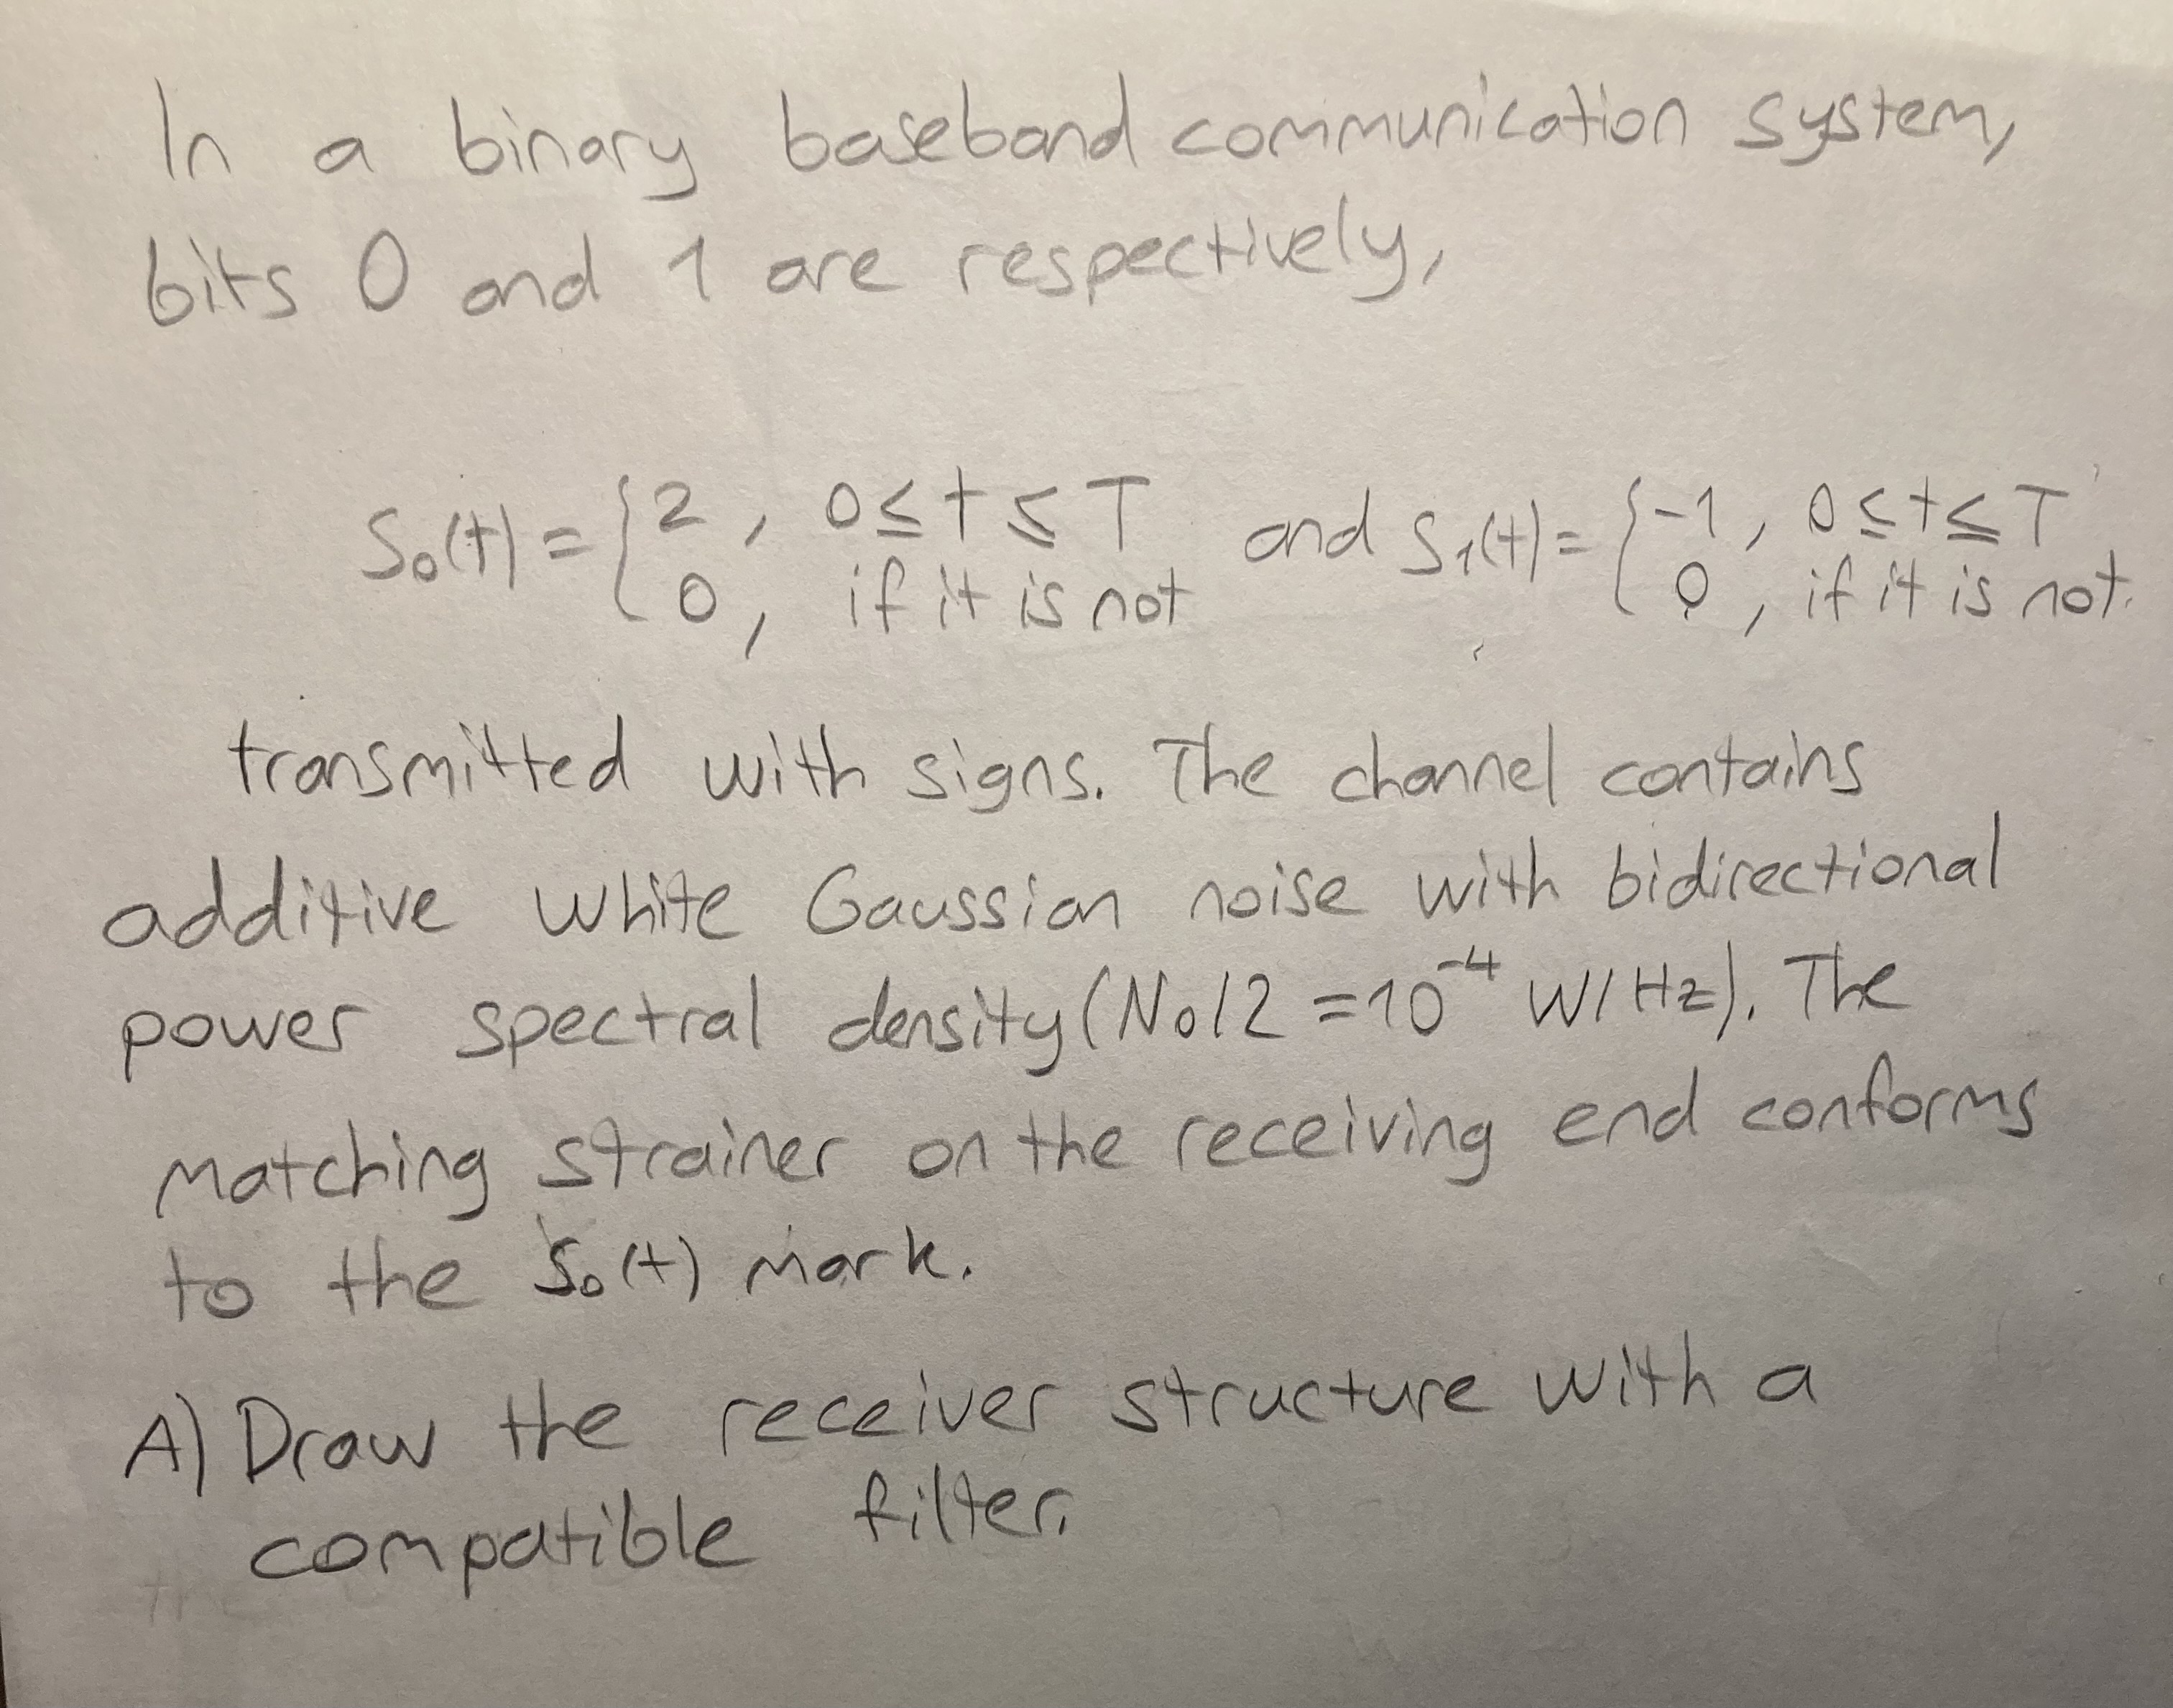 In a binary baseband communication system,
bits 0 and 1 are respectively,
S₀(t) = { 2 , 0 ≤ t ≤ T and S₁(t) = { -1 , 0 ≤ t ≤ T
0 , if it is not 0 , if it is not.
transmitted with signs. The channel contains
additive white Gaussian noise with bidirectional
power spectral density (N₀/2 = 10⁻⁴ W/Hz). The
matching strainer on the receiving end conforms
to the S₀(t) mark.
A) Draw the receiver structure with a
compatible filter.